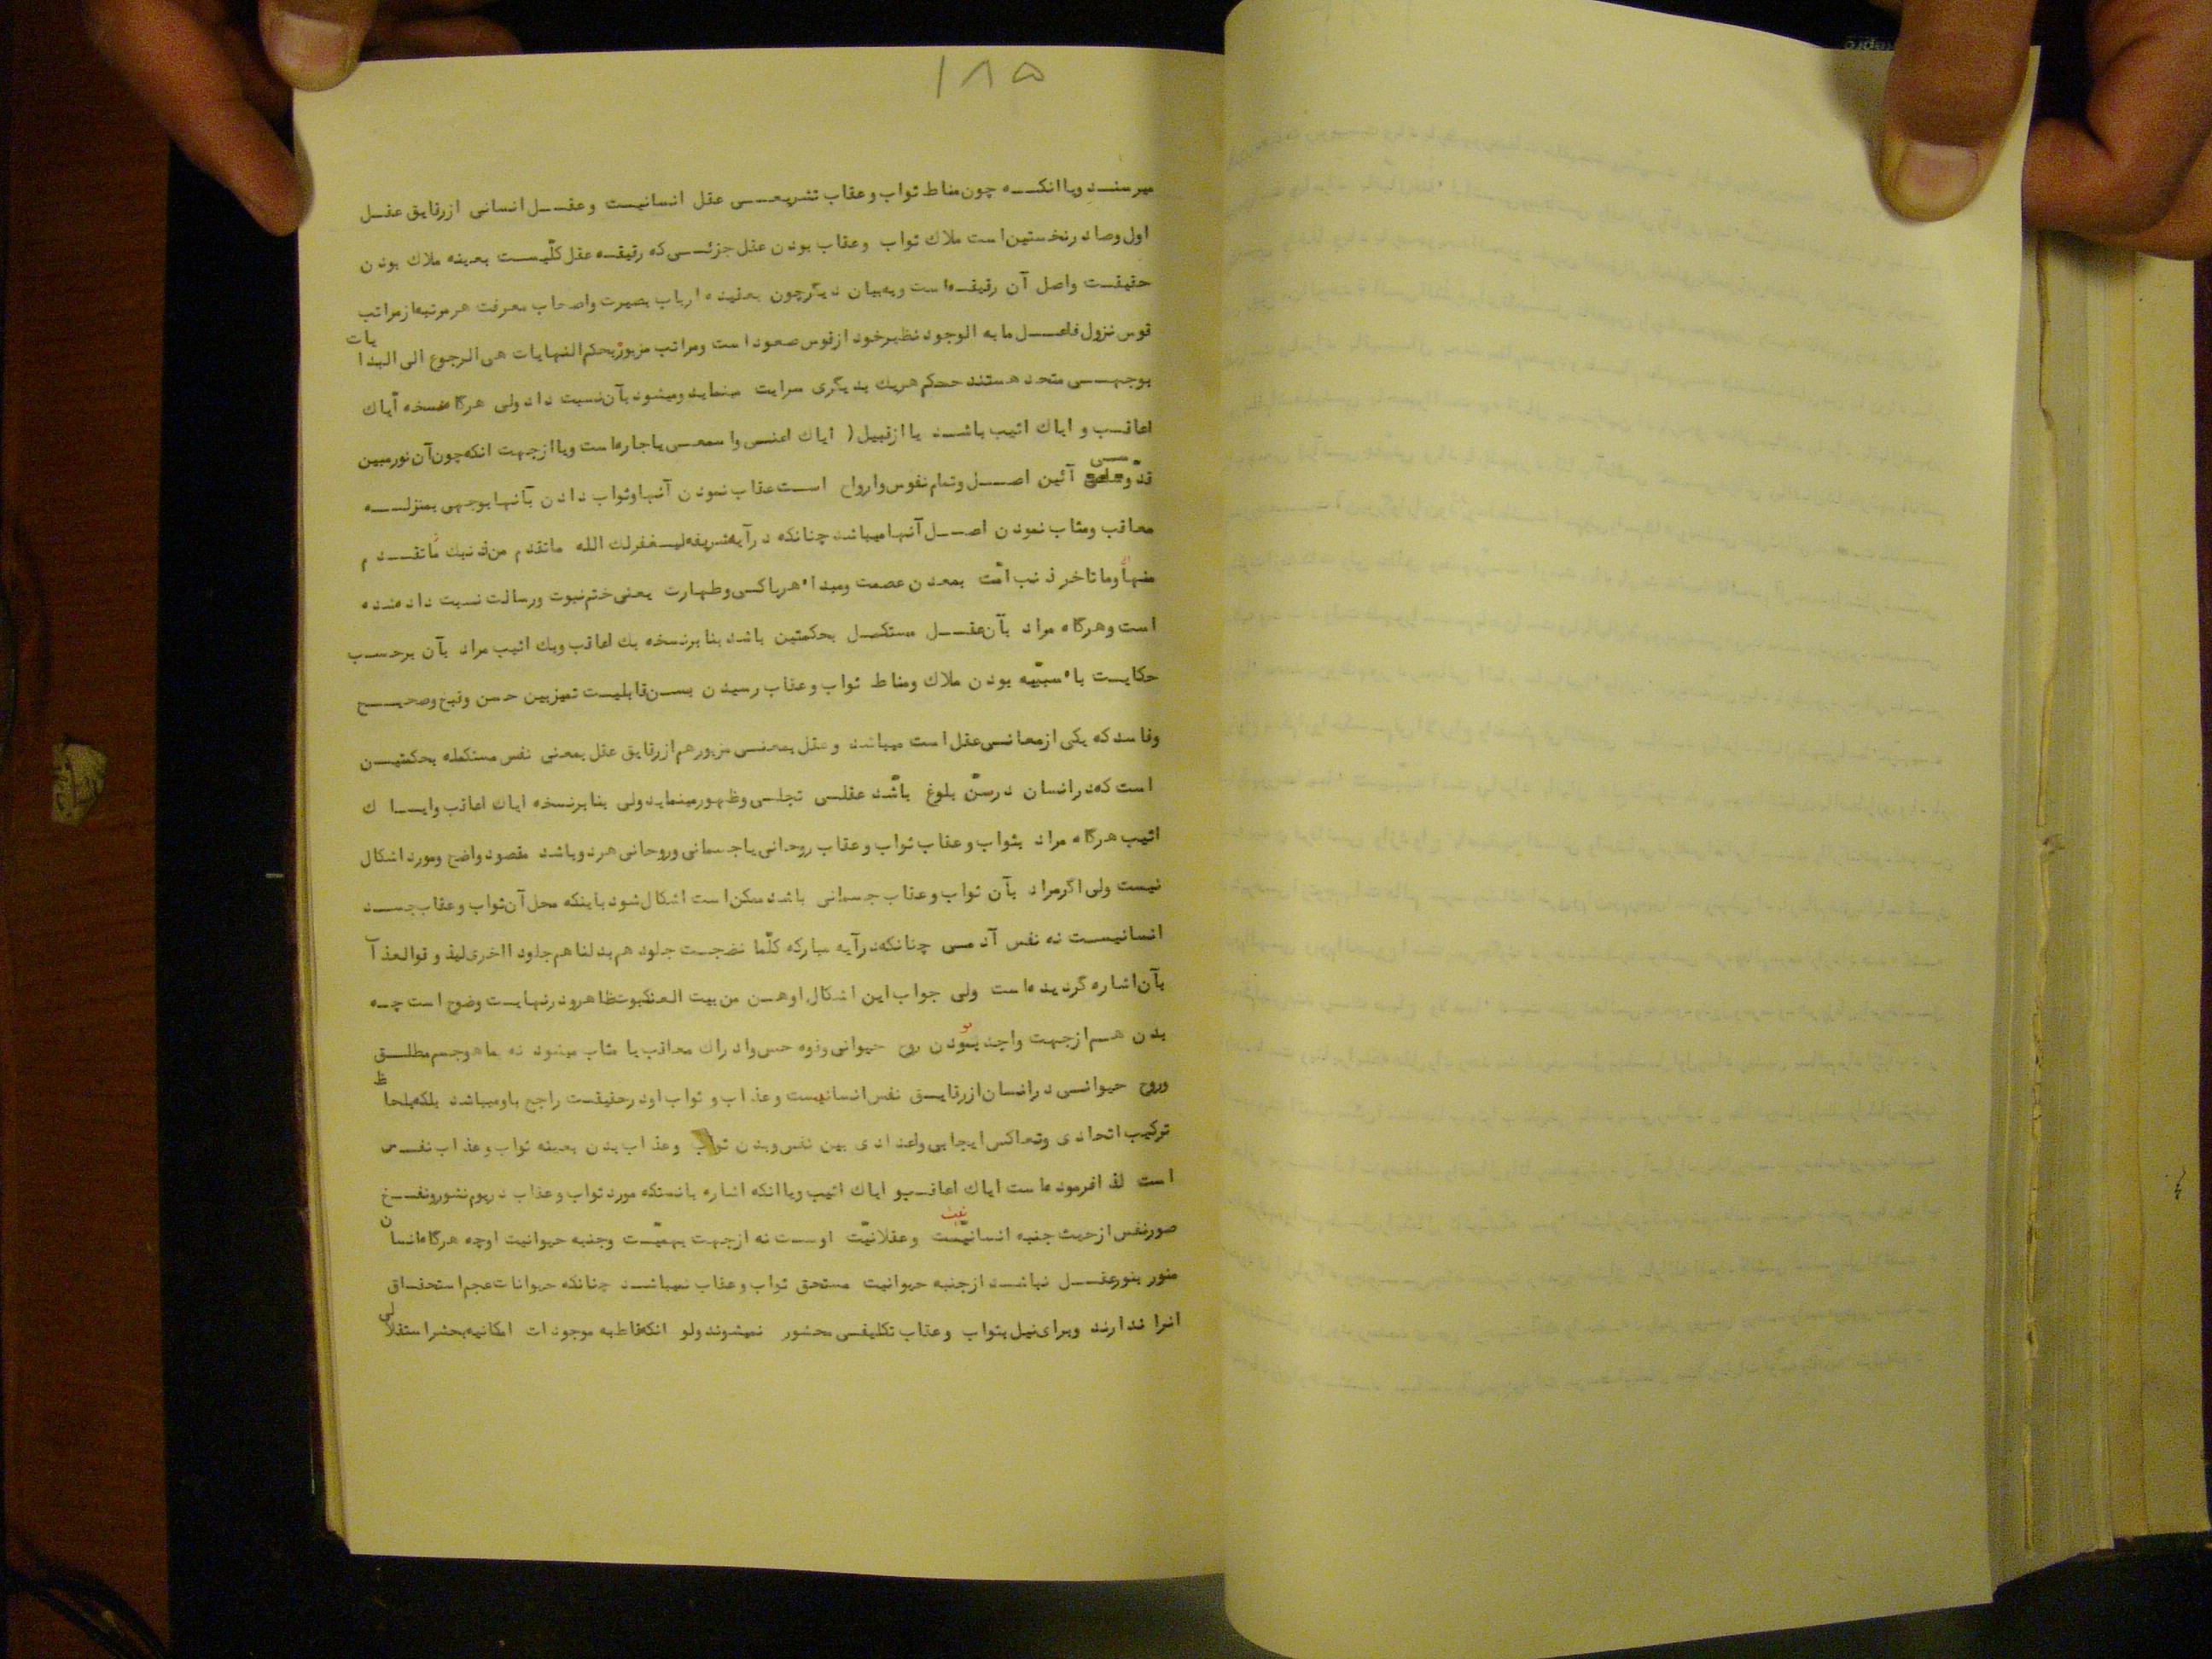 ۱۸۵
میرسند ویا انکه چون مناط ثواب و عقاب تشریعی عقل انسانیست و عقل انسانی ازرقایق عقل
اول وصادرنخستین است ملاك ثواب وعقاب بودن عقل جزئی که رقیقه عقل کلّیست بعینه ملاك بودن
حقیقت واصل آن رقیقه است وبه بیان دیگرچون بعقیده ارباب بصیرت واصحاب معرفت هرمرتبه ازمراتب
قوس نزول فاعل ما به الوجود نظیرخود ازقوس صعود است ومراتب مزبور بحکم النهایات هی الرجوع الی البدایات
بوجهی متحد هستند حکم هریك بدیگری سرایت مینماید ومیشود بآن نسبت داد ولی هرگاه نسخه ایاك
اعاقب و ایاك اثیب باشد یا ازقبیل( ایاك اعنی واسمعی یا جاره است ویا ازجهت انکه چون آن نورمبین
قدّوسی آئین اصل وتمام نفوس وارواح است عقاب نمودن آنها وثواب دادن بآنها بوجهی بمنزله
معاقب ومثاب نمودن اصل آنها میباشد چنانکه درآیه شریفه لیغفرلك الله ماتقدم من ذنبك ماتقدم
منها وماتاخر ذنب امّت بمعدن عصمت ومبداء هرپاکی وطهارت یعنی ختم نبوت ورسالت نسبت داده شده
است وهرگاه مراد بآن عقل مستکمل بحکمتین باشد بنابرنسخه بك اعاقب وبك اثیب مراد بآن برحسب
حکایت باء سببیّه بودن ملاك ومناط ثواب وعقاب رسیدن بسن قابلیت تمیزبین حسن وقبح وصحیح
وفاسد که یکی ازمعانی عقل است میباشد و عقل بمعنی مزبور هم ازرقایق عقل بمعنی نفس مستکمله بحکمتین
است که درانسان درسنّ بلوغ باشد عقلی تجلی وظهورمینماید ولی بنابرنسخه ایاك اعاقب وایاك
اثیب هرگاه مراد بثواب وعقاب ثواب وعقاب روحانی یا جسمانی وروحانی هردو باشد مقصود واضح ومورد اشکال
نیست ولی اگرمراد بآن ثواب وعقاب جسمانی باشد ممکن است اشکال شود باینکه محل آن ثواب وعقاب جسد
انسانیست نه نفس آدمی چنانکه درآیه مبارکه کلّما نضجت جلود هم بدلناهم جلودا اخری لیذوقوالعذاب
بآن اشاره گردیده است ولی جواب این اشکال اوهن من بیت العنکبوت ظاهرو درنهایت وضوح است چه
بدن هم ازجهت واجد بودن روح حیوانی وقوه حس وادراك معاقب یا مثاب میشود نه بماهوجسم مطلق
وروح حیوانی درانسان ازرقایق نفس انسانیست وعذاب و ثواب اودرحقیقت راجع باومیباشد بلکه بلحاظ
ترکیب اتحادی وتعاکس ایجابی واعدادی بین نفس وبدن ثواب وعذاب بدن بعینه ثواب وعذاب نفس
است لذا فرموده است ایاك اعاقب و ایاك اثیب ویا انکه اشاره بانستکه مورد ثواب وعذاب دریوم نشورونفخ
صورنفس ازحیث جنبه انسانیّت وعقلانیّت اوست نه ازجهت بهمیّت وجنبه حیوانیت اوچه هرگاه انسان
منور بنورعقل نباشد ازجنبه حیوانیت مستحق ثواب وعقاب نمیباشد چنانکه حیوانات عجم استحقاق
انرا ندارند وبرای نیل بثواب وعقاب تکلیفی محشور نمیشوند ولو انکه قاطبه موجودات امکانیه بحشراستقلالی